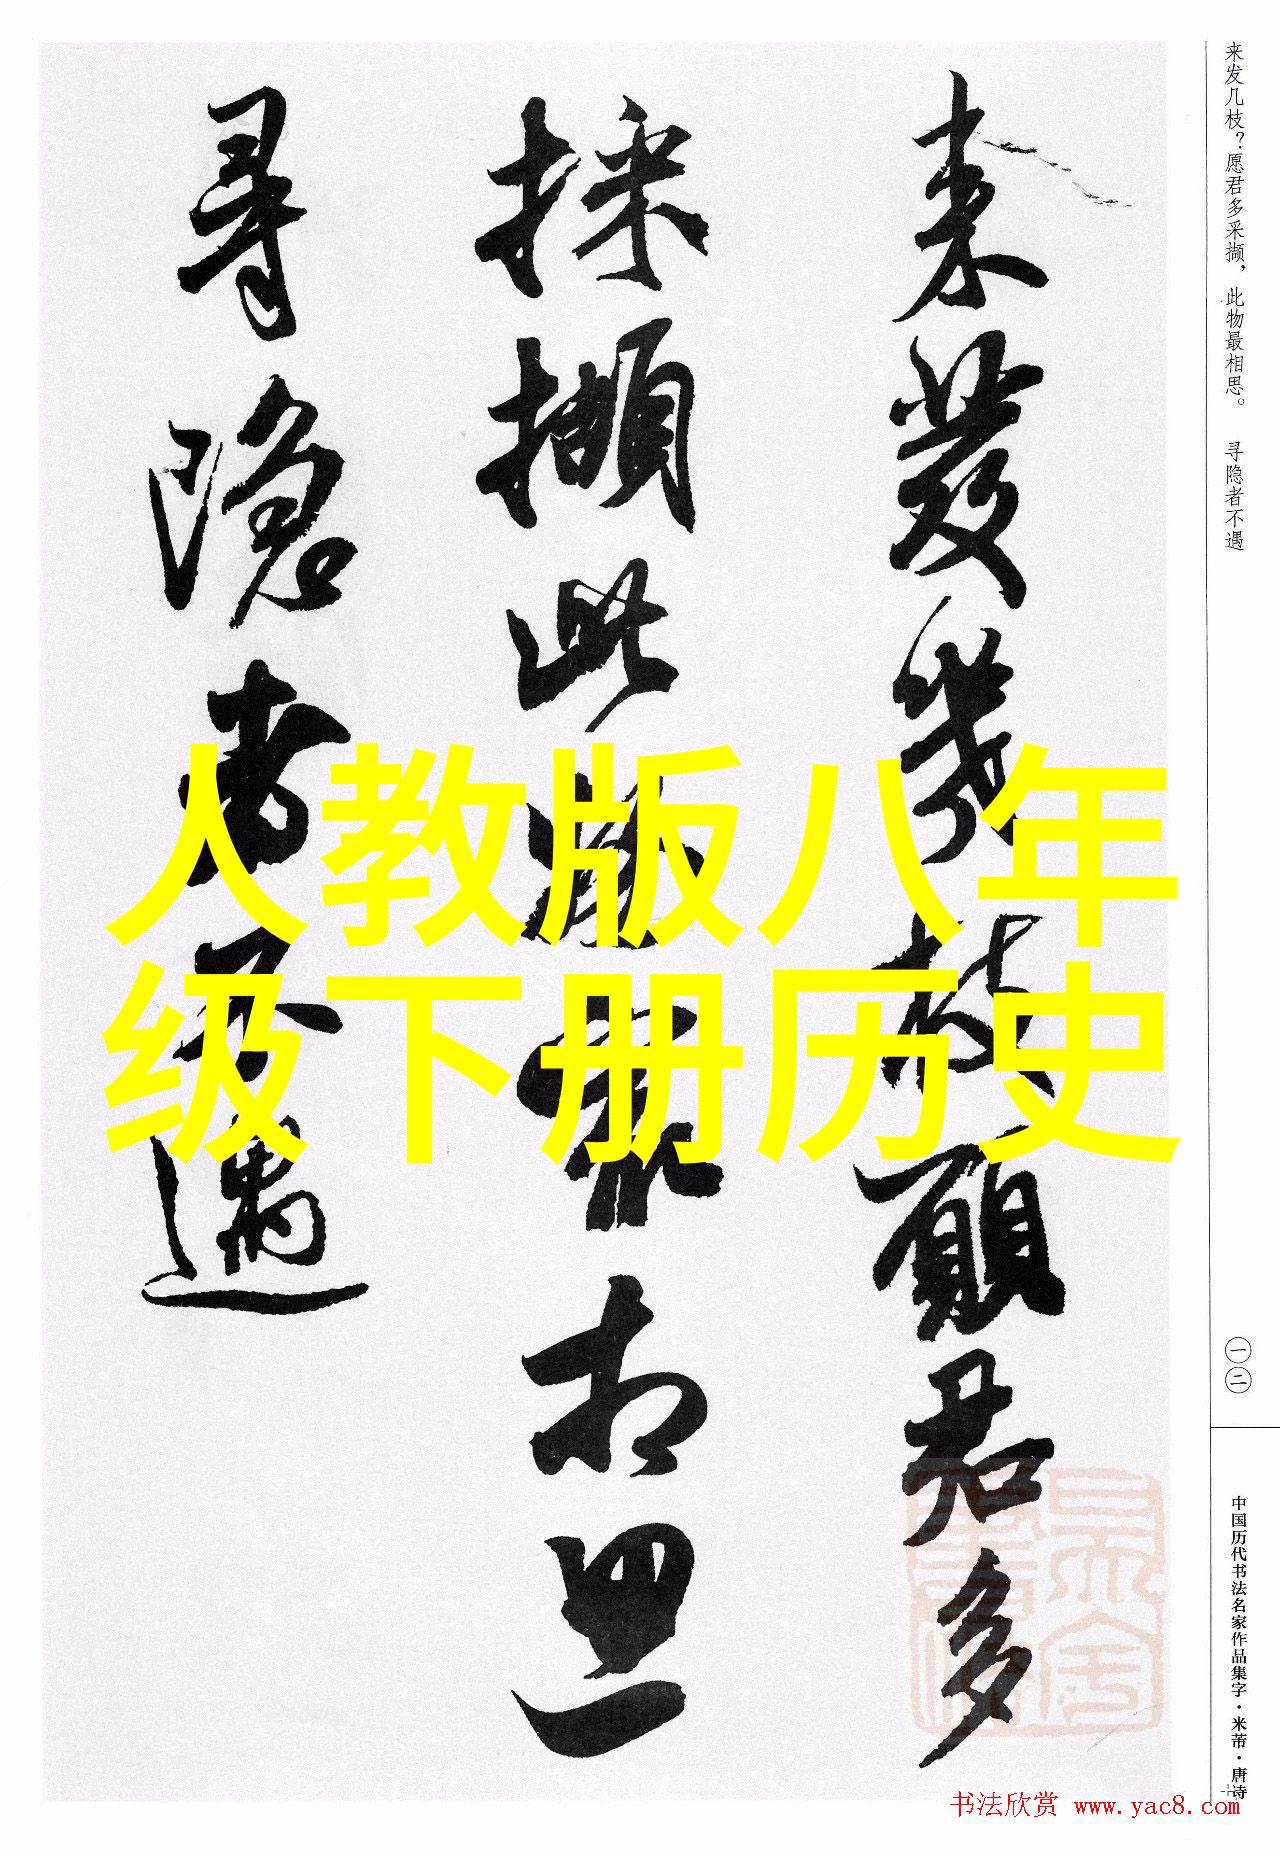 来发几枝？愿君多采撷，此物最相思。 寻隐者不遇
一二
中国历代书法名家作品集字·米芾·唐诗
来發幾枝願君多
採擷此物最相思
尋隐者不遇
人教版八年
级下册历史
书法欣赏 www.yac8.com